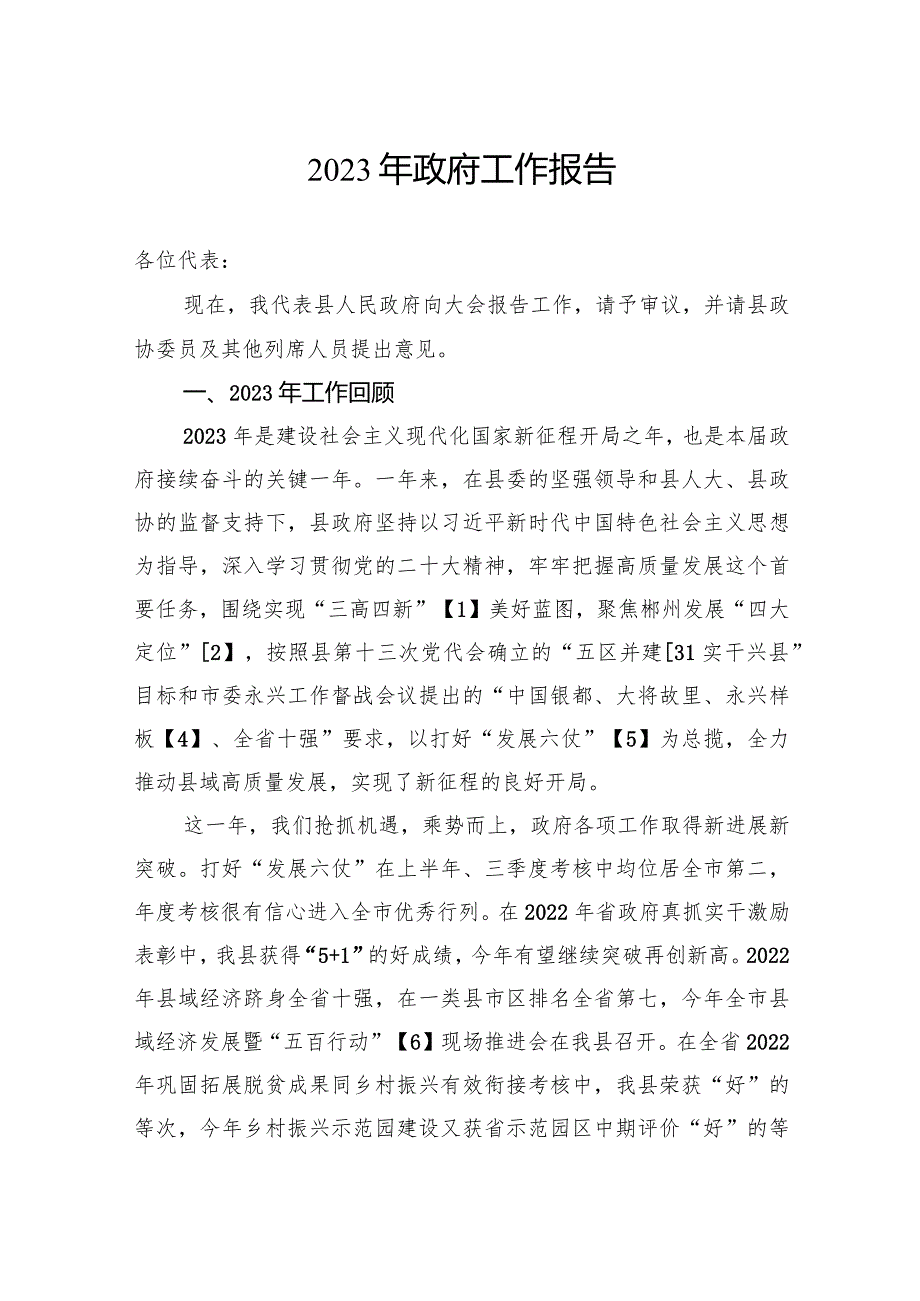 2023年政府工作报告
各位代表：
现在，我代表县人民政府向大会报告工作，请予审议，并请县政
协委员及其他列席人员提出意见。
一、2023年工作回顾
2023年是建设社会主义现代化国家新征程开局之年，也是本届政
府接续奋斗的关键一年。一年来，在县委的坚强领导和县人大、县政
协的监督支持下，县政府坚持以习近平新时代中国特色社会主义思想
为指导，深入学习贯彻党的二十大精神，牢牢把握高质量发展这个首
要任务，围绕实现“三高四新”【1】美好蓝图，聚焦郴州发展“四大
定位”[2】，按照县第十三次党代会确立的“五区并建[31实干兴县”
目标和市委永兴工作督战会议提出的“中国银都、大将故里、永兴样
板【4】、全省十强”要求，以打好“发展六仗”【5】为总揽，全力
推动县域高质量发展，实现了新征程的良好开局。
这一年，我们抢抓机遇，乘势而上，政府各项工作取得新进展新
突破。打好“发展六仗”在上半年、三季度考核中均位居全市第二，
年度考核很有信心进入全市优秀行列。在2022年省政府真抓实干激励
表彰中，我县获得“5+1”的好成绩，今年有望继续突破再创新高。2022
年县域经济跻身全省十强，在一类县市区排名全省第七，今年全市县
域经济发展暨“五百行动”【6】现场推进会在我县召开。在全省2022
年巩固拓展脱贫成果同乡村振兴有效衔接考核中，我县荣获“好”的
等次，今年乡村振兴示范园建设又获省示范园区中期评价“好”的等